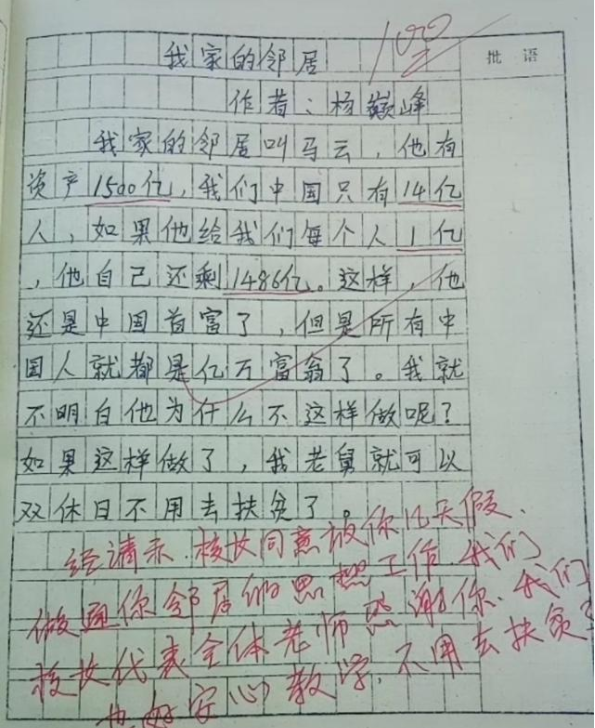 我家的邻居
100
批语
作者:杨巅峰
我家的邻居叫马云,他有
资产1500亿,我们中国只有14亿
人,如果他给我们每个人1亿
,他自己还剩1486亿。这样,他
还是中国首富了,但是所有中
国人就都是亿万富翁了。我就
不明白他为什么不这样做呢?
如果这样做了,我老舅就可以
双休日不用去扶贫了。
经请示.校故同意放你几天假.
做通你邻居的思想工作.我们
校故代表全体老师感谢你.我们
也好安心教学.不用去扶贫